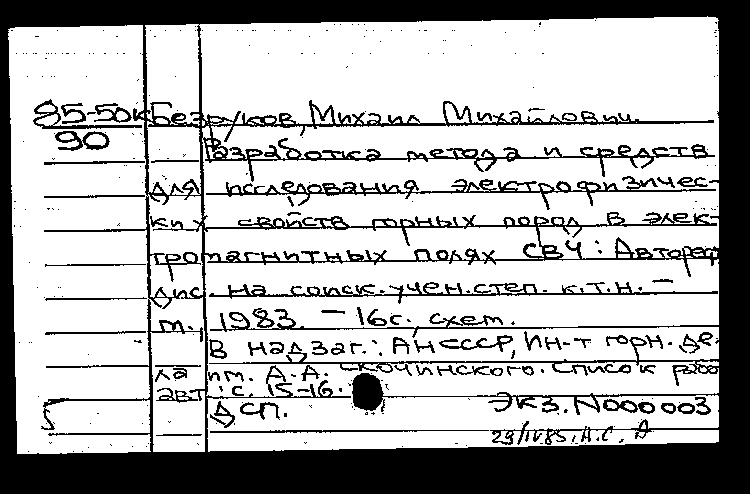 85-50к Безруков, Михаил Михайлович.
90
Разработка метода и средств
для исследования электрофизичес-
ких свойств горных пород в элек-
тромагнитных полях СВЧ: Автореф
дис. на соиск. учен. степ. к.т.н. –
м., 1983. – 16с., схем.
В надзаг.: АН СССР, Ин-т горн. де-
ла им. А.А. Скочинского. Список работ
авт.: с. 15-16.
5 ДСП. Экз. N000003
29/IV85. А.С. А